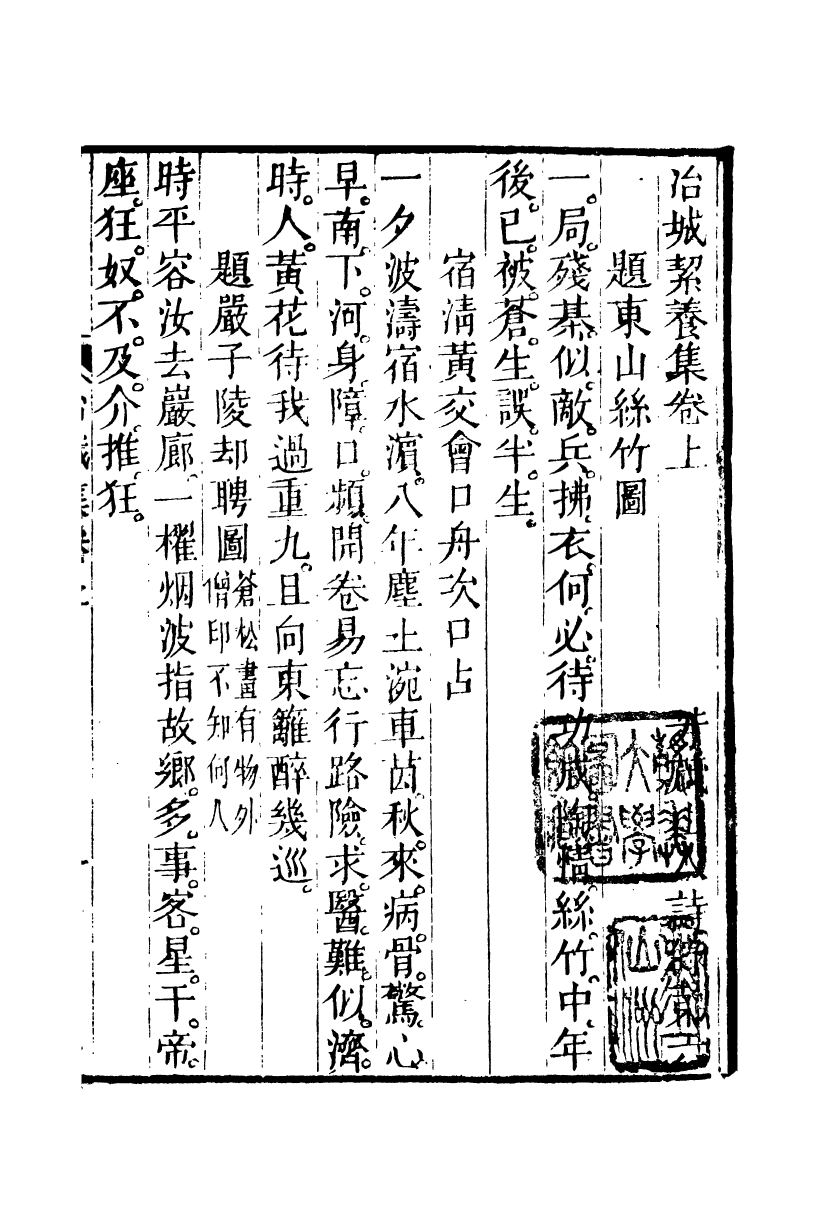 冶城絜養集卷上　詩錄第二
題東山絲竹圖
一局殘棊似敵兵拂衣何必待功成陶情絲竹中年
後已被蒼生誤半生
宿清黃交會口舟次口占
一夕波濤宿水濵八年塵土涴車茵秋來病骨驚心
早南下河身障口頻開卷易忘行路險求醫難似濟
時人黃花待我過重九且向東籬醉幾巡
題嚴子陵却聘圖蒼松畫有物外
僧印不知何人
時平容汝去巖廊一櫂烟波指故鄉多事客星干帝
座狂奴不及介推狂